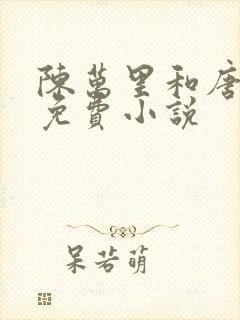 陳萬里和唐
免費小說
呆若萌